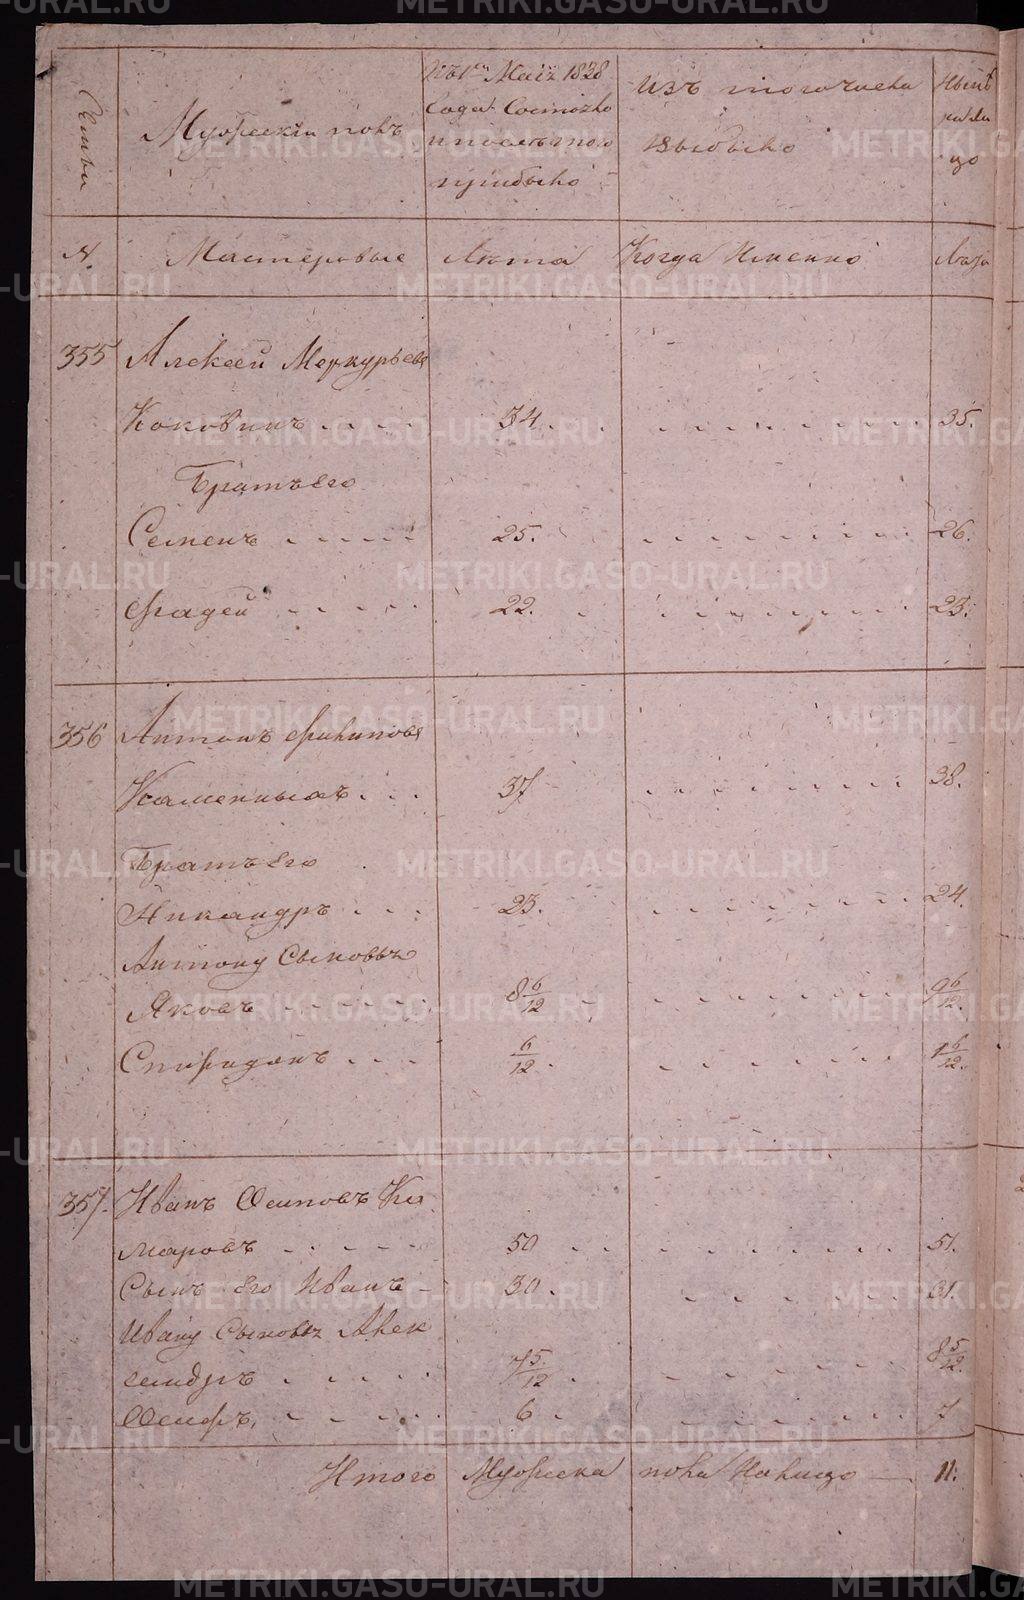 Семьи
Мужескій полъ
Къ 1му Маія 1838
Года Состояло
и после того
прибыло
Изъ того числа
выбыло
Ныне
на ли
цо
№
Мастеровые Лета Когда Именно Лета
355 Алексей Меркурьевъ
Коковинъ . . . . 34 . . . . . . . . . . 35.
Братья Его
Семенъ . . . . . 25. . . . . . . . . . 26.
Фадей . . . . . 22. . . . . . . . . . 23.
356 Антонъ Филиповъ
Каменныхъ . . . 37 . . . . . . . . . 38.
Братъ Его
Никандръ . . . 23. . . . . . . . . . 24.
Антону Сыновья
Яковъ . . . . . 8 6/12 . . . . . . . . . 9 6/12.
Спиридонъ . . . 6/12 . . . . . . . . . 1 6/12.
357. Иванъ Осиповъ Ко
маровъ . . . . . 50 . . . . . . . . . . 51.
Сынъ Его Иванъ - 30 . . . . . . . . 31.
Ивану Сыновья Алек
сандръ . . . . . 7 5/12 . . . . . . . . . 8 5/12.
Осипъ, . . . . . 6 . . . . . . . . . . 7
Итого Мужеска пола На лицо — 11.
METRIKI.GASO-URAL.RU